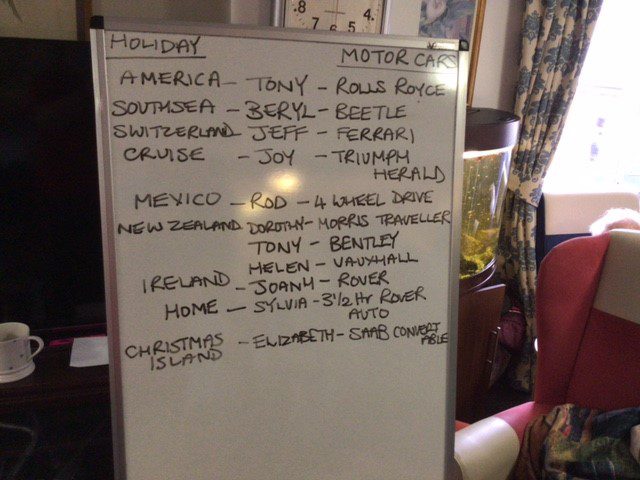 8 7 6 5 4
HOLIDAY MOTOR CARS
AMERICA - TONY - ROLLS ROYCE
SOUTHSEA - BERYL - BEETLE
SWITZERLAND JEFF - FERRARI
CRUISE - JOY - TRIUMPH
HERALD
MEXICO - ROD - 4 WHEEL DRIVE
NEW ZEALAND DOROTHY - MORRIS TRAVELLER
TONY - BENTLEY
HELEN - VAUXHALL
IRELAND - JOANY - ROVER
HOME - SYLVIA - 3 1/2 Hr ROVER
AUTO
CHRISTMAS - ELIZABETH - SAAB CONVERT
ISLAND ABLE